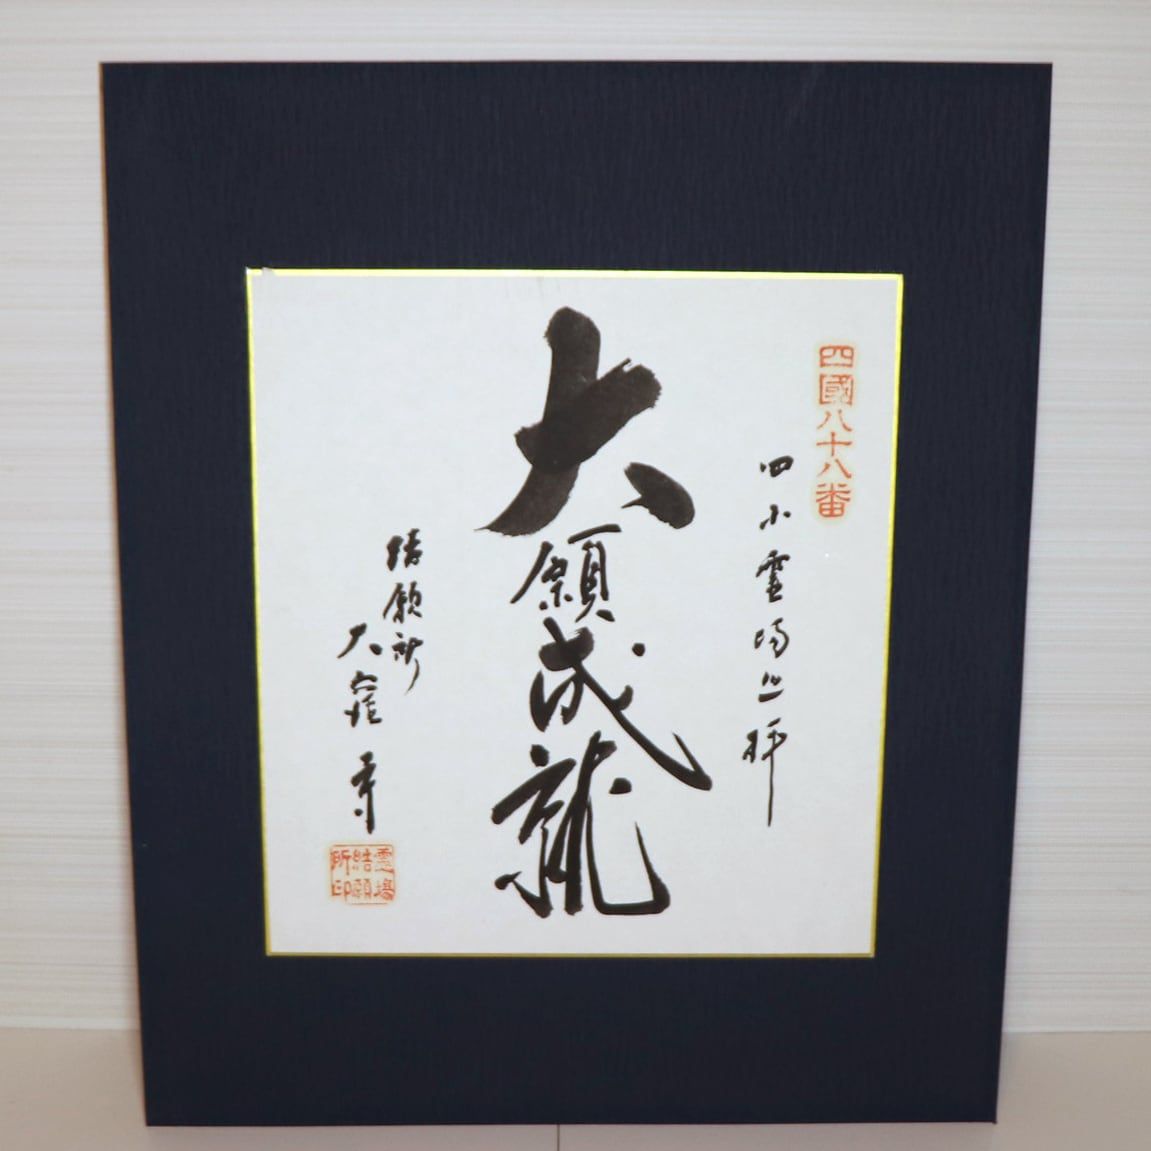 四國八十八番
四州霊場巡拝
大願成就
結願所
大窪寺
靈場
結願
所印